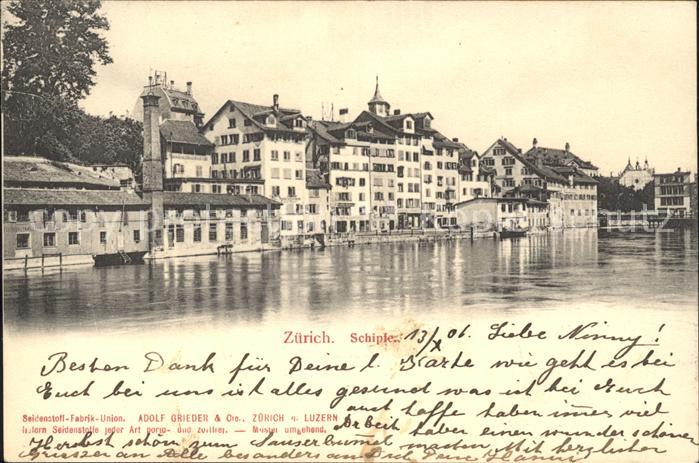 Zürich. Schipfe. 13/X 06. Liebe Ninny!
Besten Dank für Deine l. Karte wie geht es bei
Euch bei uns ist alles gesund was ist bei Euch
auch hoffe haben immer viel
Seidenstoff-Fabrik-Union. ADOLF GRIEDER & Cie., ZÜRICH u. LUZERN
Arbeit haben einen wunder schönen
liefern Seidenstoffe jeder Art porto- und zollfrei. — Muster umgehend.
Herbst schön zum Sauserbummel machen Mit herzlichen
Grüssen an Alle besonders an Dich Deine